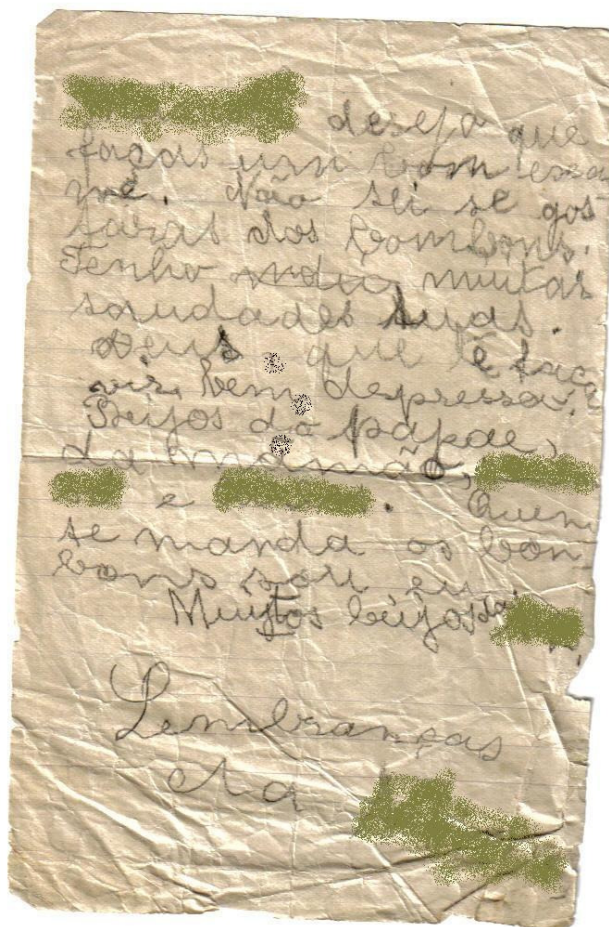 deseja que
faças um bom exa
me. Não sei se gos
taras dos bombons.
Tenho muitas
saudades suas.
Deus que te faça
vir bem depressa.
Beijos do papae,
da mamãe,
e . Quem
te manda os bon
bons sou eu
Muytos beijos da
Lembranças
da